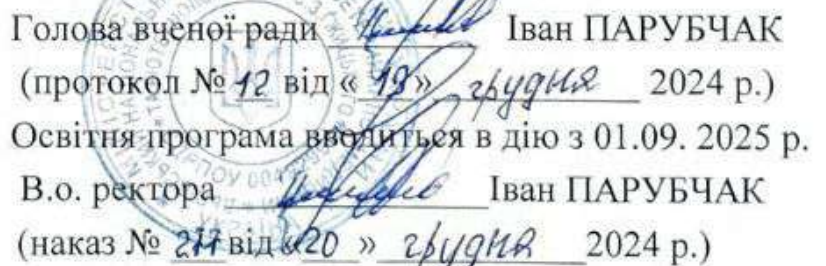 Голова вченої ради ________ Іван ПАРУБЧАК
(протокол № 12 від « 19 » грудня 2024 р.)
Освітня програма вводиться в дію з 01.09. 2025 р.
В.о. ректора ________ Іван ПАРУБЧАК
(наказ № 277 від «20 » грудня 2024 р.)